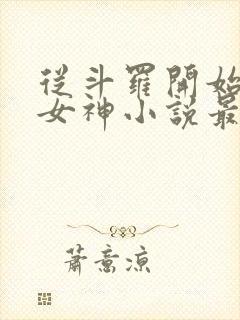 從斗羅開始
女神小說最
蕭意涼